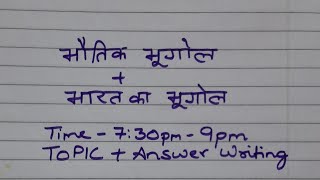 भौतिक भूगोल
+
भारत का भूगोल
Time - 7:30pm - 9pm
TOPIC + Answer Writing